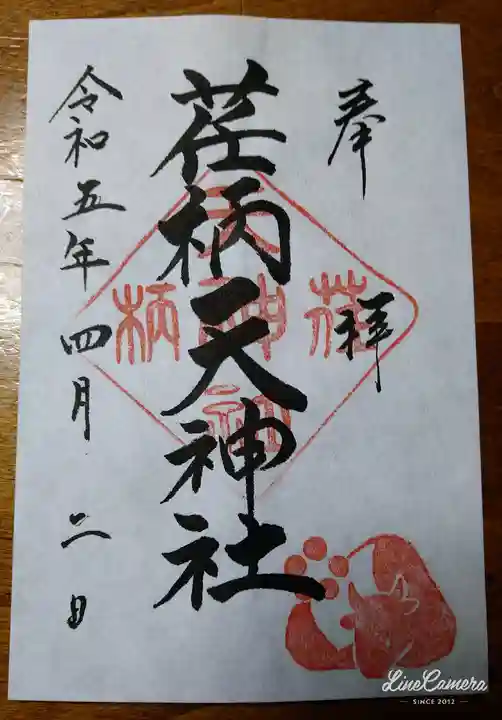 奉拝
荏柄天神社
令和五年四月二日
荏柄天神社
LineCamera
SINCE 2012